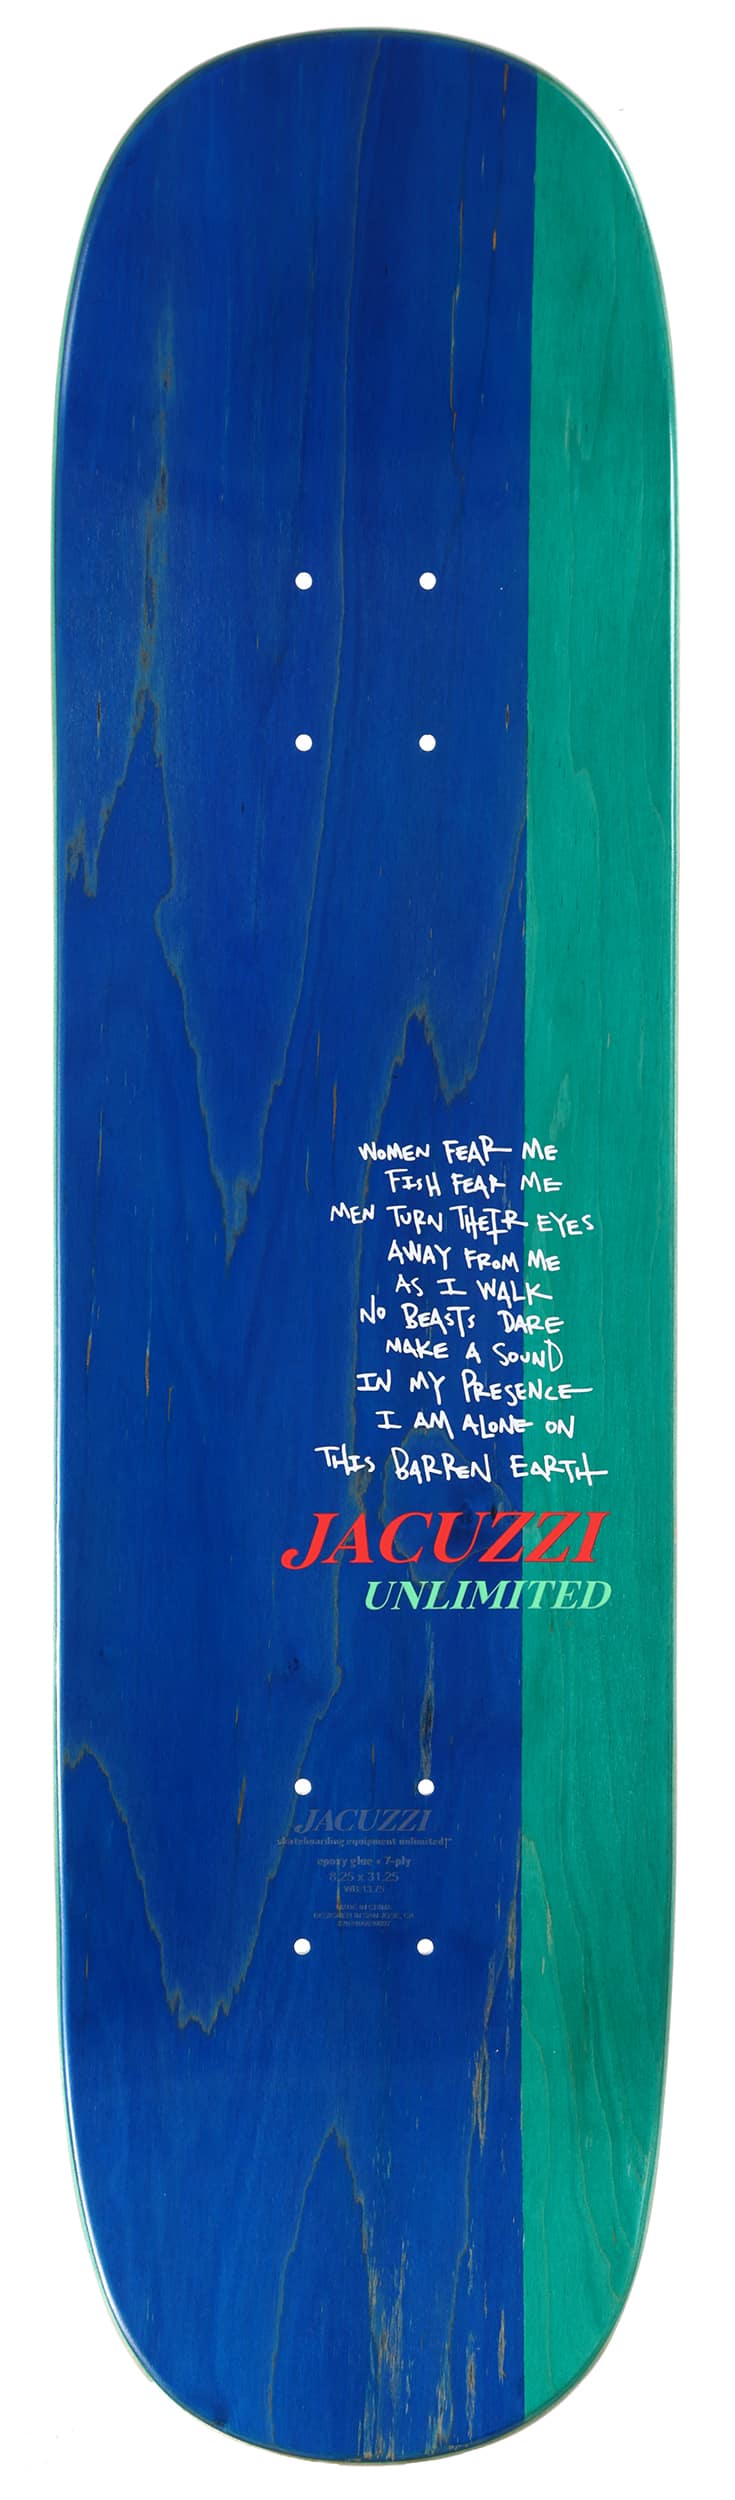 WOMEN FEAR ME
FISH FEAR ME
MEN TURN THEIR EYES
AWAY FROM ME
AS I WALK
NO BEASTS DARE
MAKE A SOUND
IN MY PRESENCE
I AM ALONE ON
THIS BARREN EARTH
JACUZZI
UNLIMITED
JACUZZI
skateboarding equipment unlimited
epoxy glue • 7-ply
8.25 x 31.25
WB 13.75
MADE IN CHINA
DESIGNED IN SAN JOSE, CA